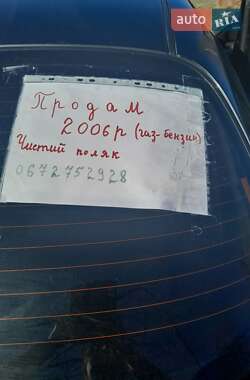 auto RIA
Продам
2006р (газ-бензин)
Чистий поляк
0672752928